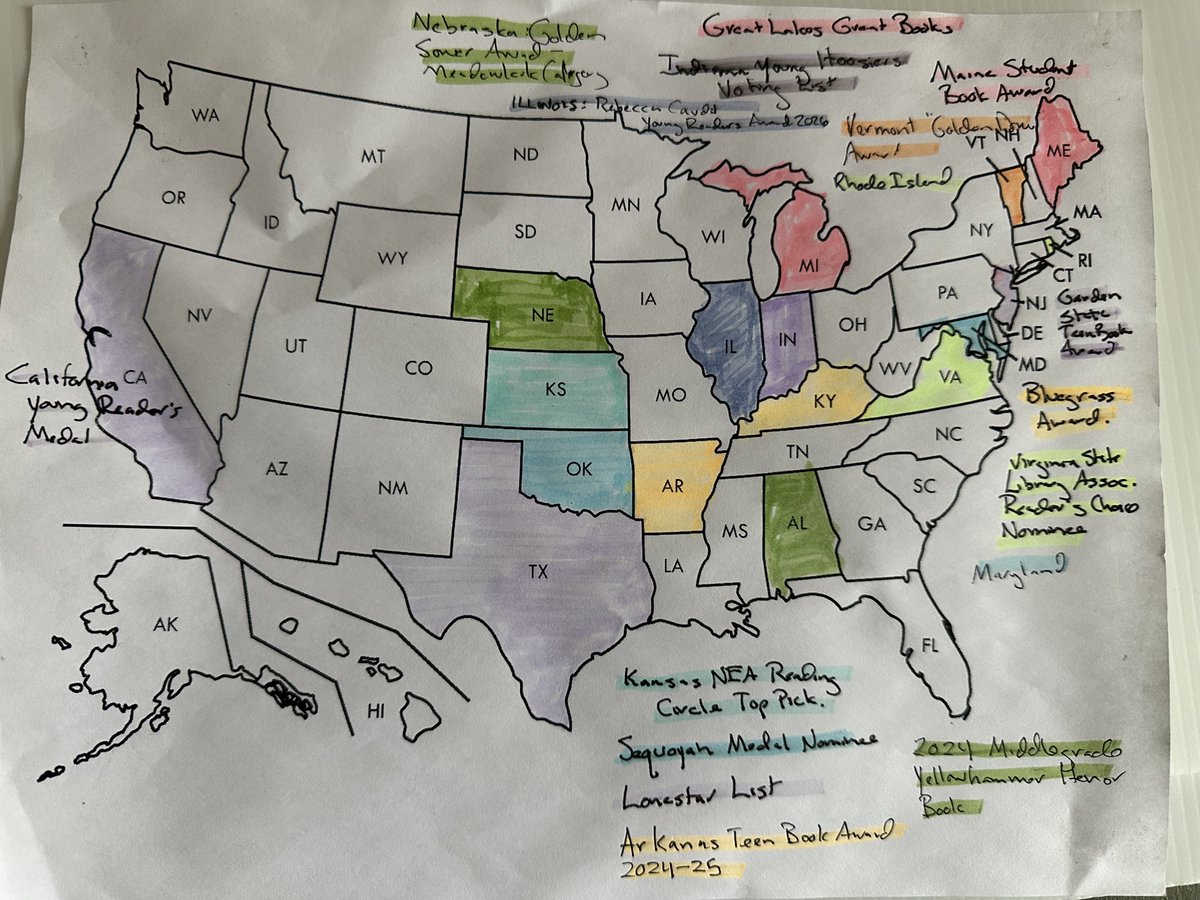 Nebraska: Golden
Sower Award -
Meadowlark Category
Great Lakes Great Books
Indiana Young Hoosiers
Voting List
ILLINOIS: Rebecca Caudill
Young Readers Award 2026
Maine Student
Book Award
Vermont "Golden Dome
Award
Rhode Island
WA
OR
ID
MT
ND
SD
WY
MN
WI
MI
VT
NH
ME
NY
MA
RI
CT
PA
NJ
DE
MD
Garden
State
Teen Book
Award
NV
UT
CO
NE
KS
IA
MO
IL
IN
OH
WV
VA
KY
CA
California
Young Reader's
Medal
Bluegrass
Award.
AZ
NM
OK
AR
TN
NC
SC
Virginia State
Library Assoc.
Reader's Choice
Nominee
Maryland
TX
LA
MS
AL
GA
FL
AK
HI
Kansas NEA Reading
Circle Top Pick.
Sequoyah Medal Nominee
Lonestar List
Arkansas Teen Book Award
2024-25
2024 Middlegrade
Yellowhammer Honor
Book